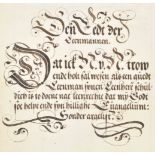 Den Eedt der
Leenmannen.
Dat ick N. N. trow
ende holt sal wesen als een goedt
Leenman sijnen Leenheere schul-
dich is te doene
soe helpe ende syn heilighe Evangelium:
Sonder arghelist.